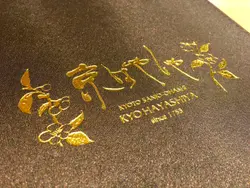 京はやしや
KYOTO SANJO OHASHI
KYOHAYASHIYA
since 1753